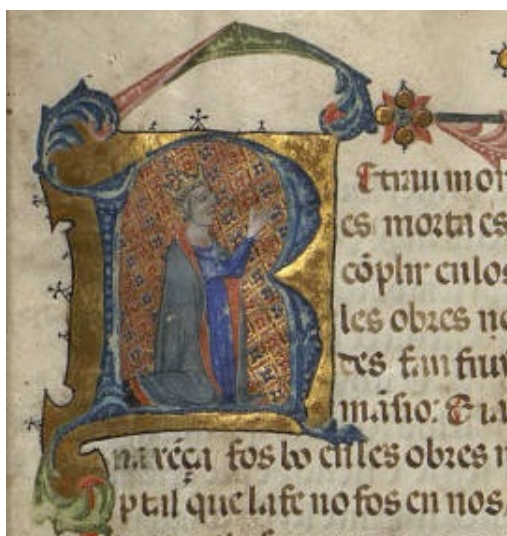 R Etrau mon
es morta es
cõplir en los
les obres no
des fan fruy
mãsio: E ia
naxẽça fos bo en les obres n
ptal que la fe no fos en nos,